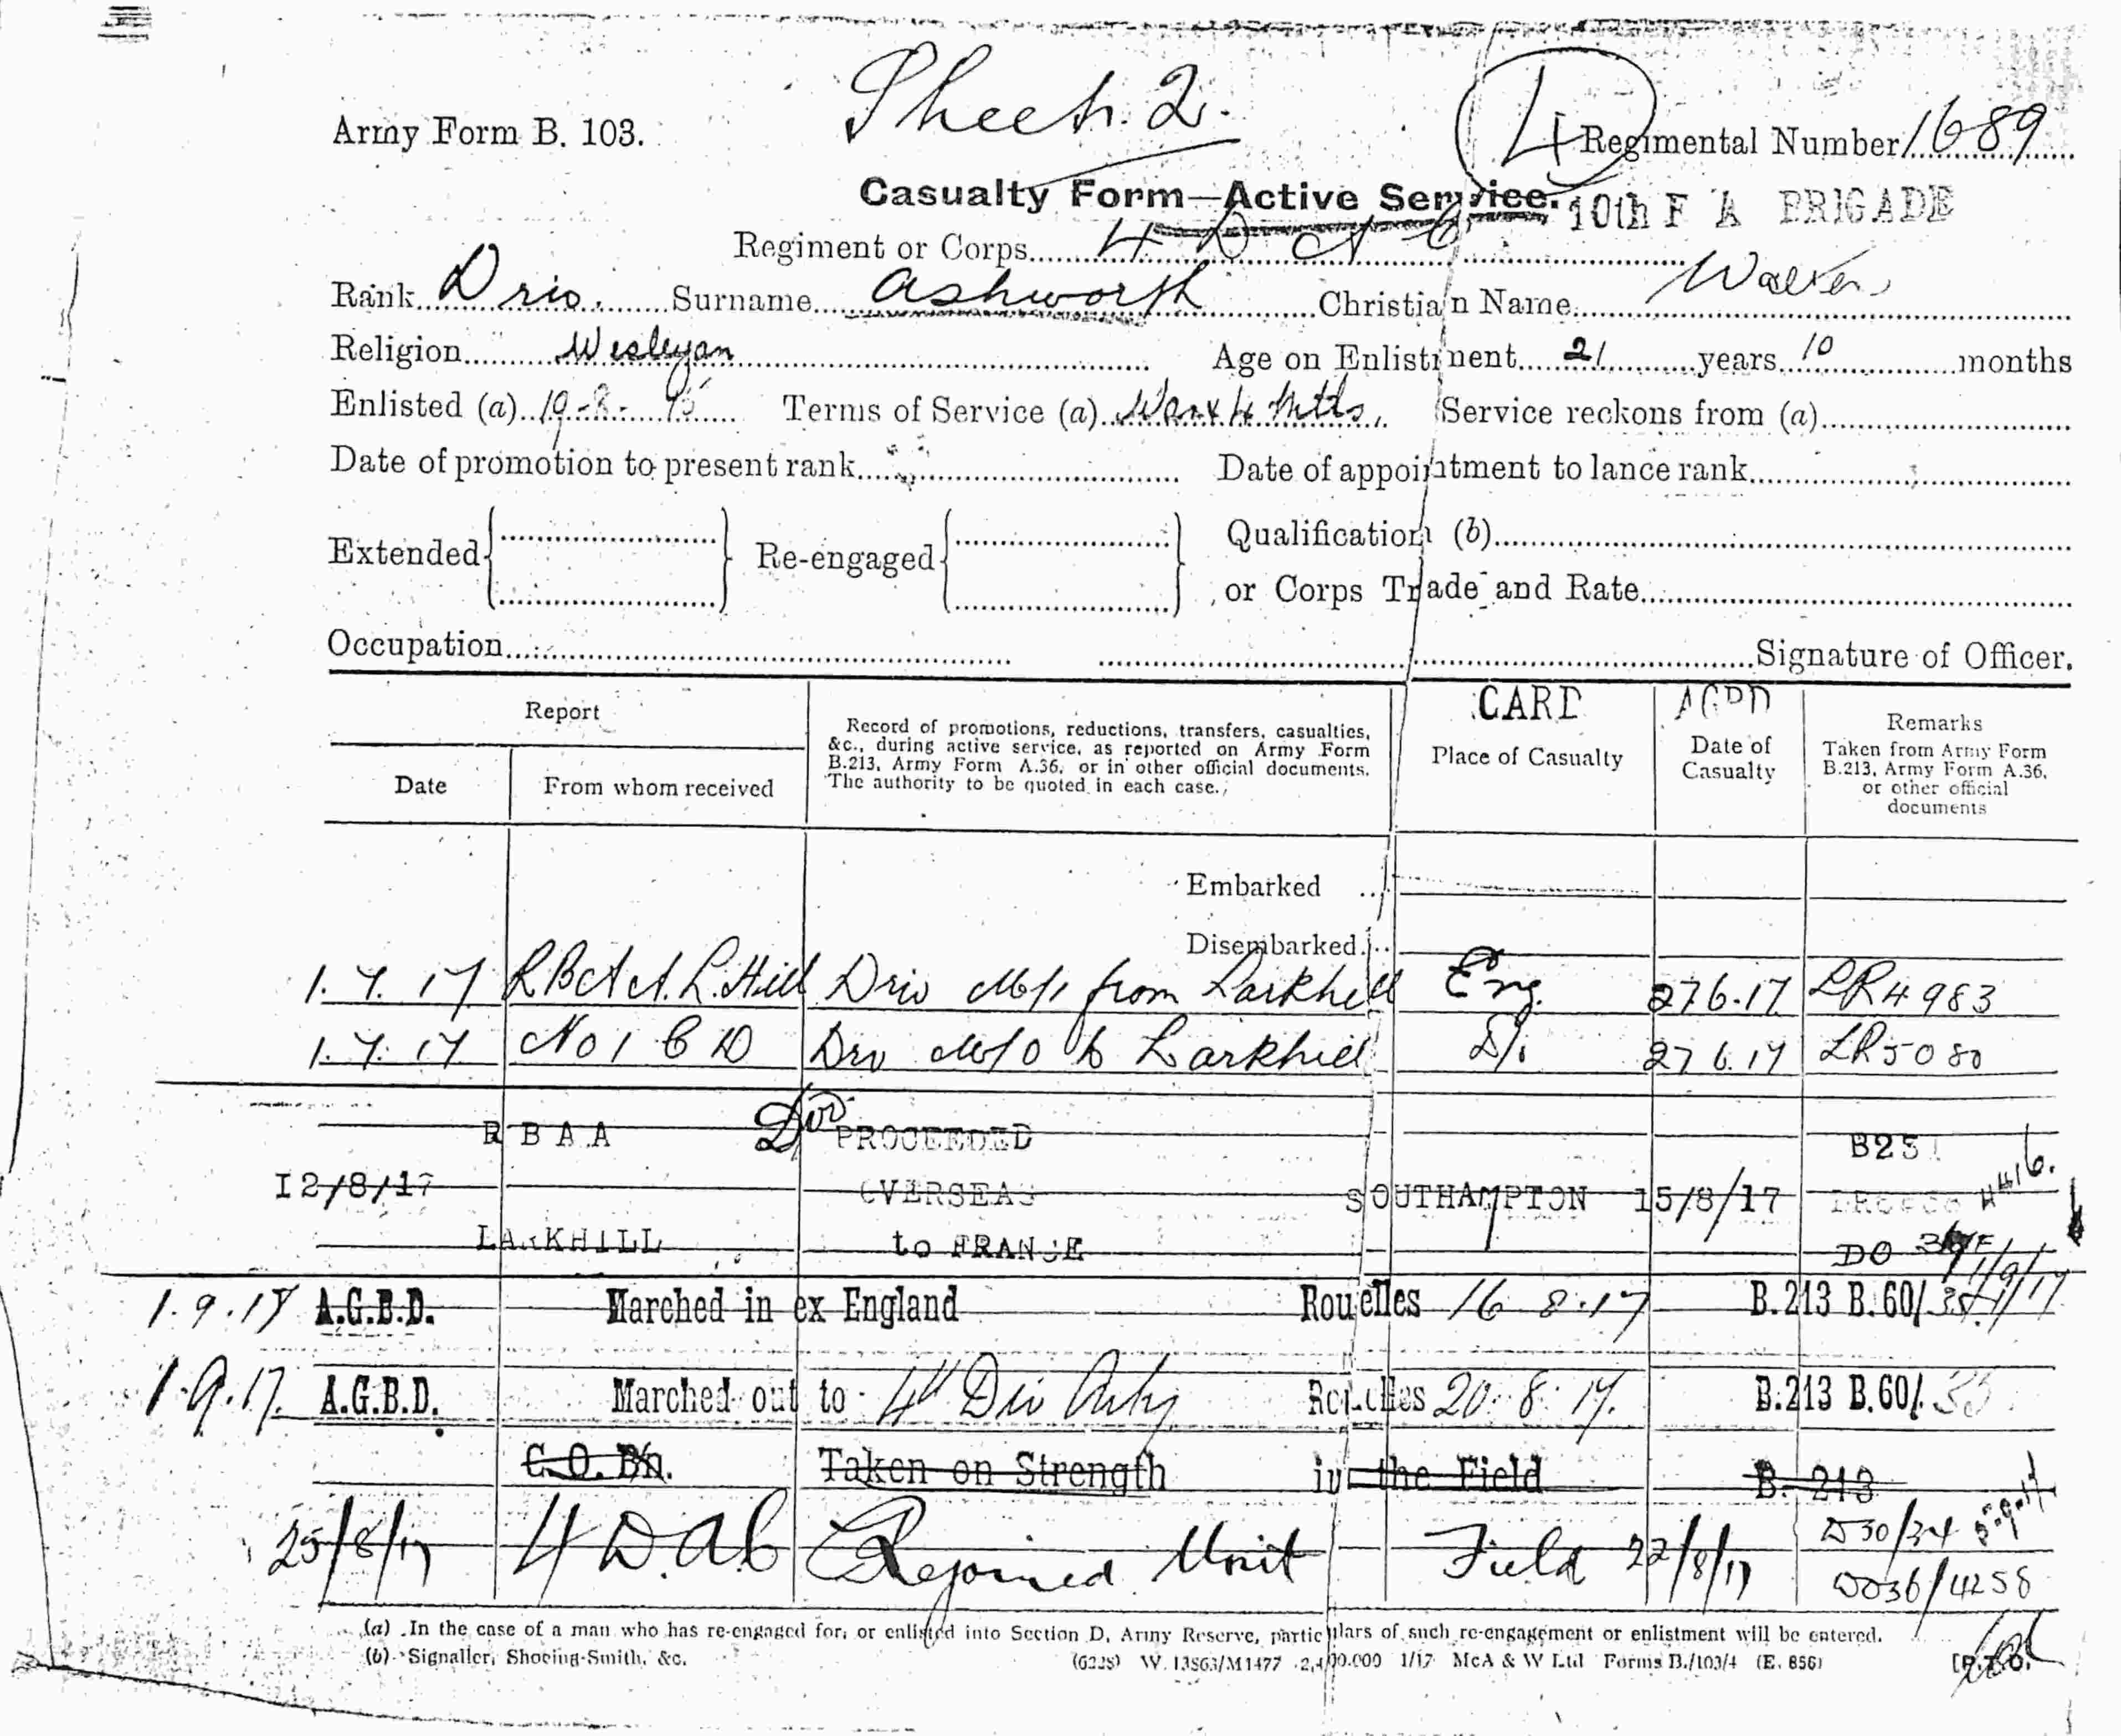 Sheet. 2.
4
Army Form B. 103.
Regimental Number 1689
Casualty Form—Active Service.
10th F A BRIGADE
Regiment or Corps 4 D A C
Rank Driv. Surname Ashworth Christian Name Walker
Religion Wesleyan Age on Enlistment 21 years 10 months
Enlisted (a) 19-8-15 Terms of Service (a) War & 4 Mths. Service reckons from (a)
Date of promotion to present rank Date of appointment to lance rank
Extended Re-engaged Qualification (b)
or Corps Trade and Rate
Occupation Signature of Officer.
CARD AGBD
Report Record of promotions, reductions, transfers, casualties, &c., during active service, as reported on Army Form B.213, Army Form A.36, or in other official documents. The authority to be quoted in each case. Place of Casualty Date of Casualty Remarks Taken from Army Form B.213, Army Form A.36, or other official documents
Date From whom received
Embarked
Disembarked
1.7.17 R B A A L.Hill Driv M/I from Larkhill Eng. 27.6.17 LR4983
1.7.17 No 1 C D Drv M/O to Larkhill D/o 27 6.17 LR5080
R B A A Dvr PROCEEDED B251
12/8/17 OVERSEAS SOUTHAMPTON 15/8/17 4416.
LARKHILL to FRANCE DO
1/9/17
1.9.17 A.G.B.D. Marched in ex England Rouelles 16 8.17 B.213 B.60/
1.9.17. A.G.B.D. Marched out to 4th Div Arty Rouelles 20.8.17. B.213 B.60/. 35
C.O. Bn. Taken on Strength in the Field B. 213
25/8/17 4 D.A.C Rejoined Unit Field 22/8/17 D30/34 5.9.17
DO36/4258
(a) In the case of a man who has re-engaged for, or enlisted into Section D, Army Reserve, particulars of such re-engagement or enlistment will be entered.
(b) Signaller, Shoeing-Smith, &c. (6228) W. 13863/M1477 2,400,000 1/17 McA & W Ltd Forms B./103/4 (E. 856) [P.T.O.